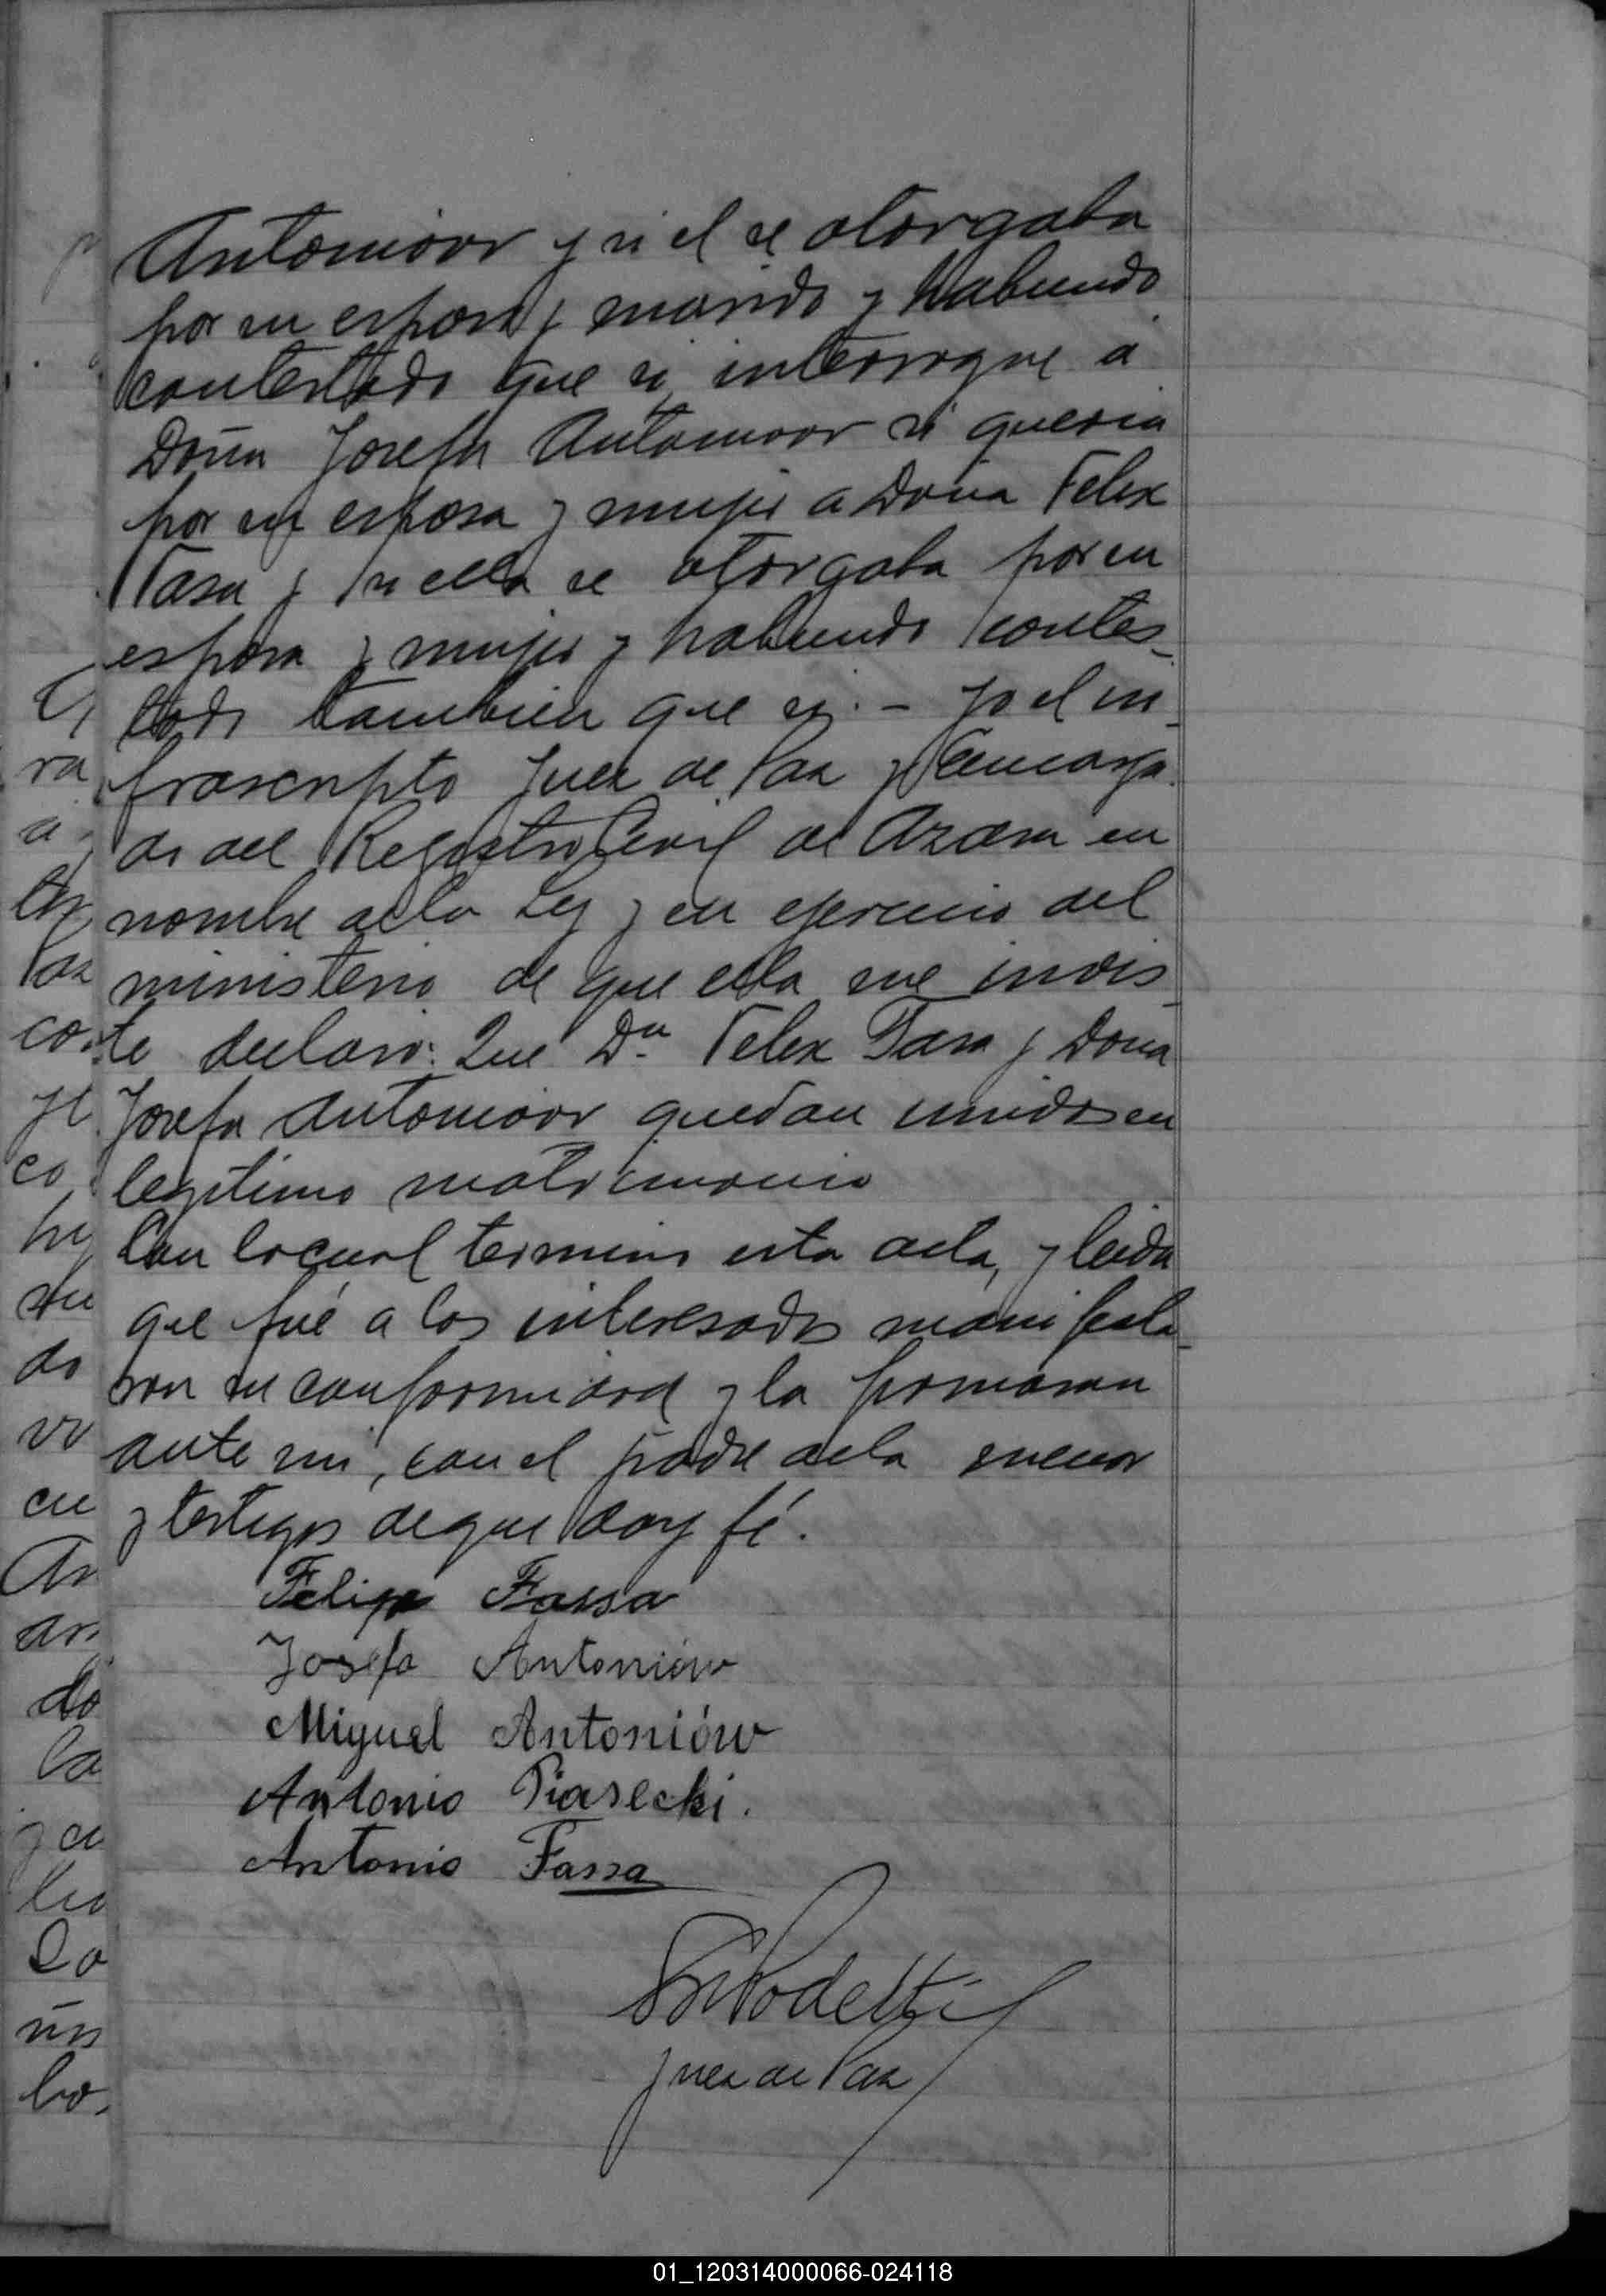 Antomioor y si el se otorgaba
por su esposo y marido y habiendo
contestado que si, interrogue a
Doña Josefa Antomioor si queria
por su esposa y mujer a Dona Felix
Fasa y si ella se otorgaba por su
esposa y mujer y habiendo contes-
tado tambien que si. - Yo el in-
frascripto Juez de Paz y Encarga-
do del Registro Civil de Azara en
nombre de la Ley y en ejercicio del
ministerio de que ella me invis-
te declaro: Que Dn Felix Fasa y Dona
Josefa Antomioor quedan unidos en
legitimo matrimonio
Con lo cual termino esta acta, y leida
que fué a los interesados manifesta-
ron su conformidad y la firmaran
ante mi, con el padre de la menor
y testigos de que doy fé.
Felipe Fassa
Josefa Antoniów
Miguel Antoniów
Antonio Piasecki.
Antonio Fassa
Podetti
Juez de Paz
ra
a
Paz
co
ye
co
hi
su
do
vi
en
An
do
la
Do
un
bo.
01_120314000066-024118